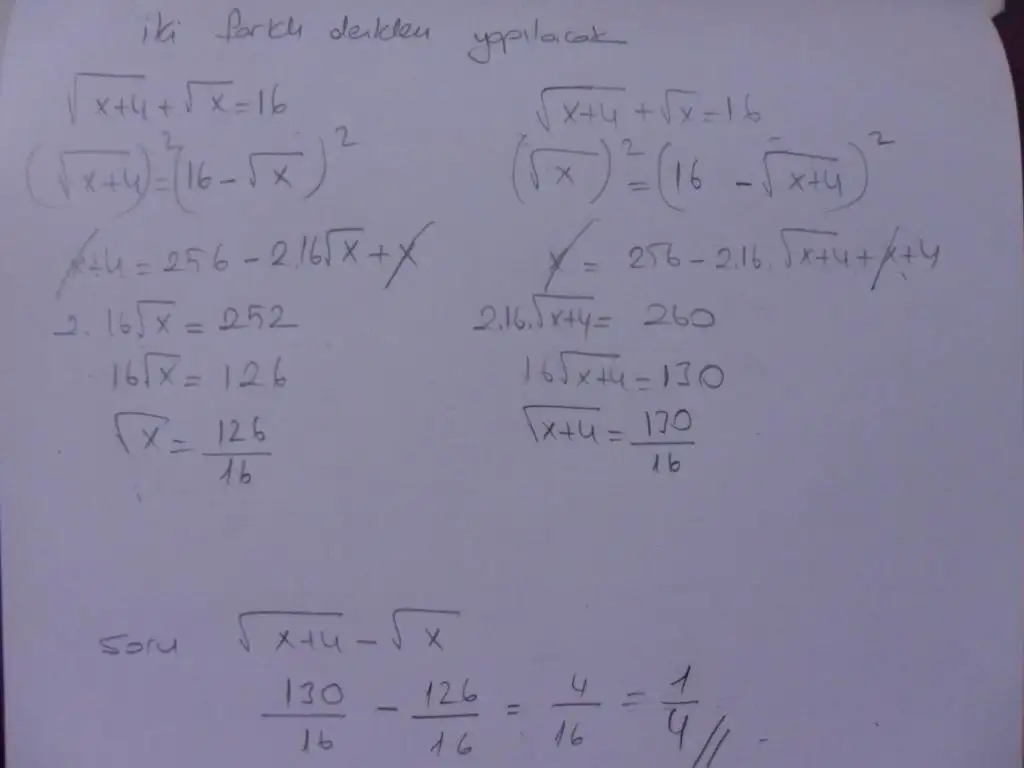 iki farklı denklem yapılacak
√x+4 + √x = 16
(√x+4)² = (16 - √x)²
x+4 = 256 - 2.16√x + x
2.16√x = 252
16√x = 126
√x = 126/16
√x+4 + √x = 16
(√x)² = (16 - √x+4)²
x = 256 - 2.16.√x+4 + x+4
2.16.√x+4 = 260
16√x+4 = 130
√x+4 = 130/16
soru √x+4 - √x
130/16 - 126/16 = 4/16 = 1/4 //